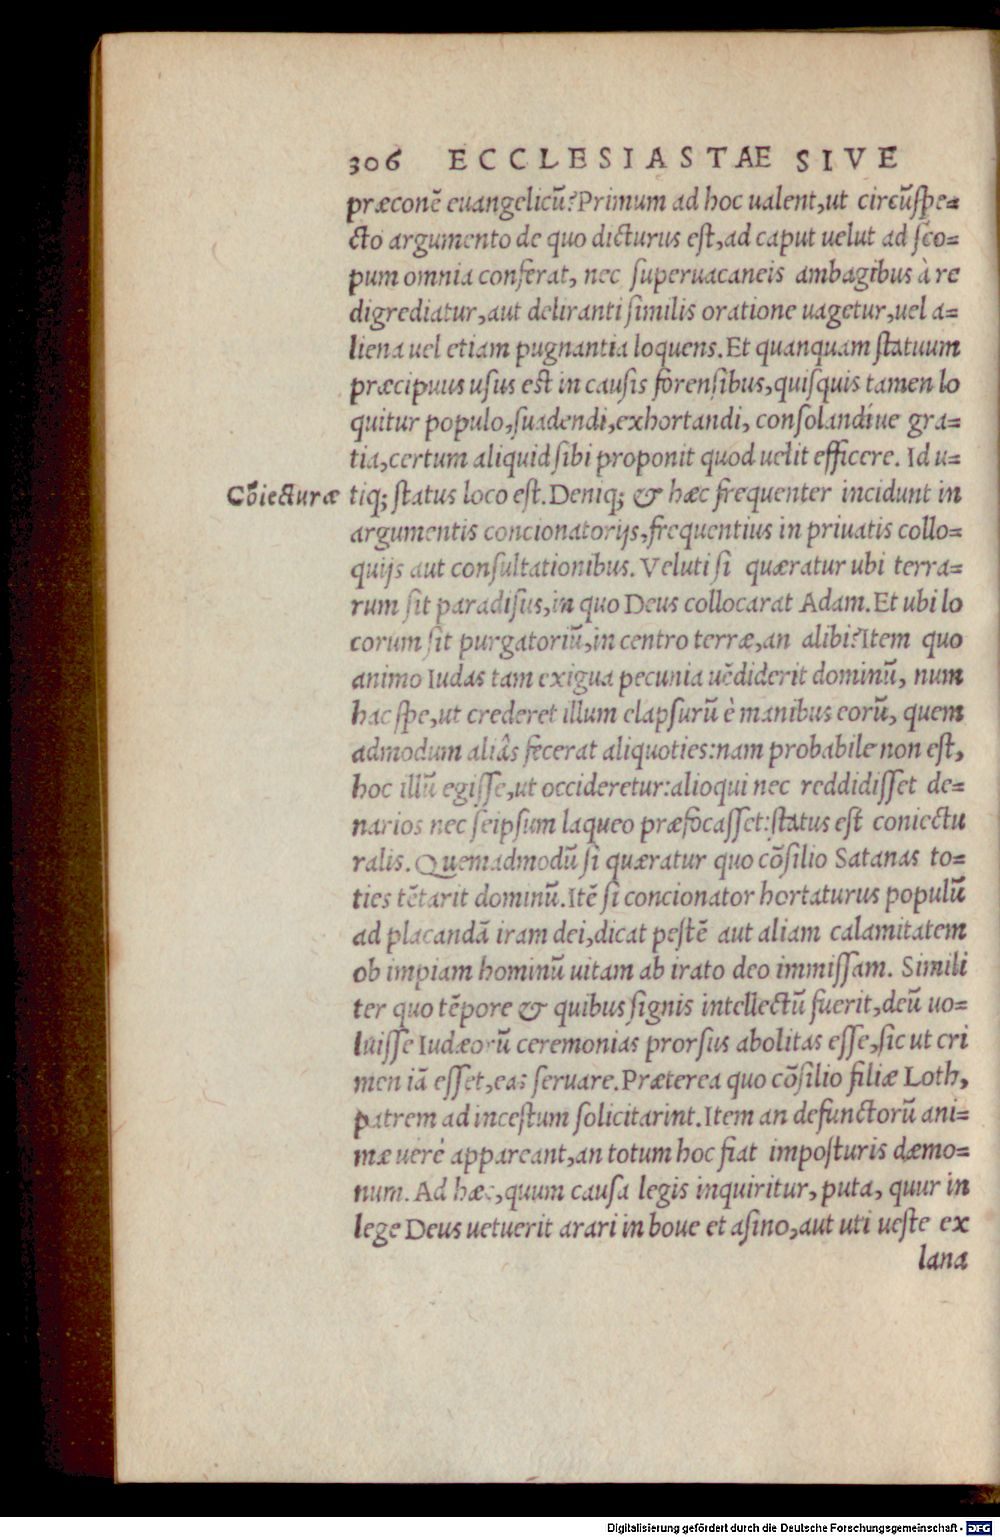 306 ECCLESIASTAE SIVE
præconē euangelicū? Primum ad hoc ualent, ut circūspe=
cto argumento de quo dicturus est, ad caput uelut ad sco=
pum omnia conferat, nec superuacaneis ambagibus à re
digrediatur, aut deliranti similis oratione uagetur, uel a=
liena uel etiam pugnantia loquens. Et quanquam statuum
præcipuus usus est in causis forensibus, quisquis tamen lo
quitur populo, suadendi, exhortandi, consolandíue gra=
tia, certum aliquid sibi proponit quod uelit efficere. Id u=
Cōiecturæ tiq; status loco est. Deniq; & hæc frequenter incidunt in
argumentis concionatorijs, frequentius in priuatis collo=
quijs aut consultationibus. Veluti si quæratur ubi terra=
rum sit paradisus, in quo Deus collocarat Adam. Et ubi lo
corum sit purgatoriū, in centro terræ, an alibi? Item quo
animo Iudas tam exigua pecunia uēdiderit dominū, num
hac spe, ut crederet illum elapsurū è manibus eorū, quem
admodum aliâs fecerat aliquoties: nam probabile non est,
hoc illū egisse, ut occideretur: alioqui nec reddidisset de=
narios nec seipsum laqueo præfocasset: status est coniectu
ralis. Quemadmodū si quæratur quo cōsilio Satanas to=
ties tētarit dominū. Itē si concionator hortaturus populū
ad placandā iram dei, dicat pestē aut aliam calamitatem
ob impiam hominū uitam ab irato deo immissam. Simili
ter quo tēpore & quibus signis intellectū fuerit, deū uo=
luisse Iudæorū ceremonias prorsus abolitas esse, sic ut cri
men iā esset, eas seruare. Præterea quo cōsilio filiæ Loth,
patrem ad incestum solicitarint. Item an defunctorū ani=
mæ uerè appareant, an totum hoc fiat imposturis dæmo=
num. Ad hæc, quum causa legis inquiritur, puta, quur in
lege Deus uetuerit arari in boue et asino, aut uti ueste ex
lana
Digitalisierung gefördert durch die Deutsche Forschungsgemeinschaft - DFG